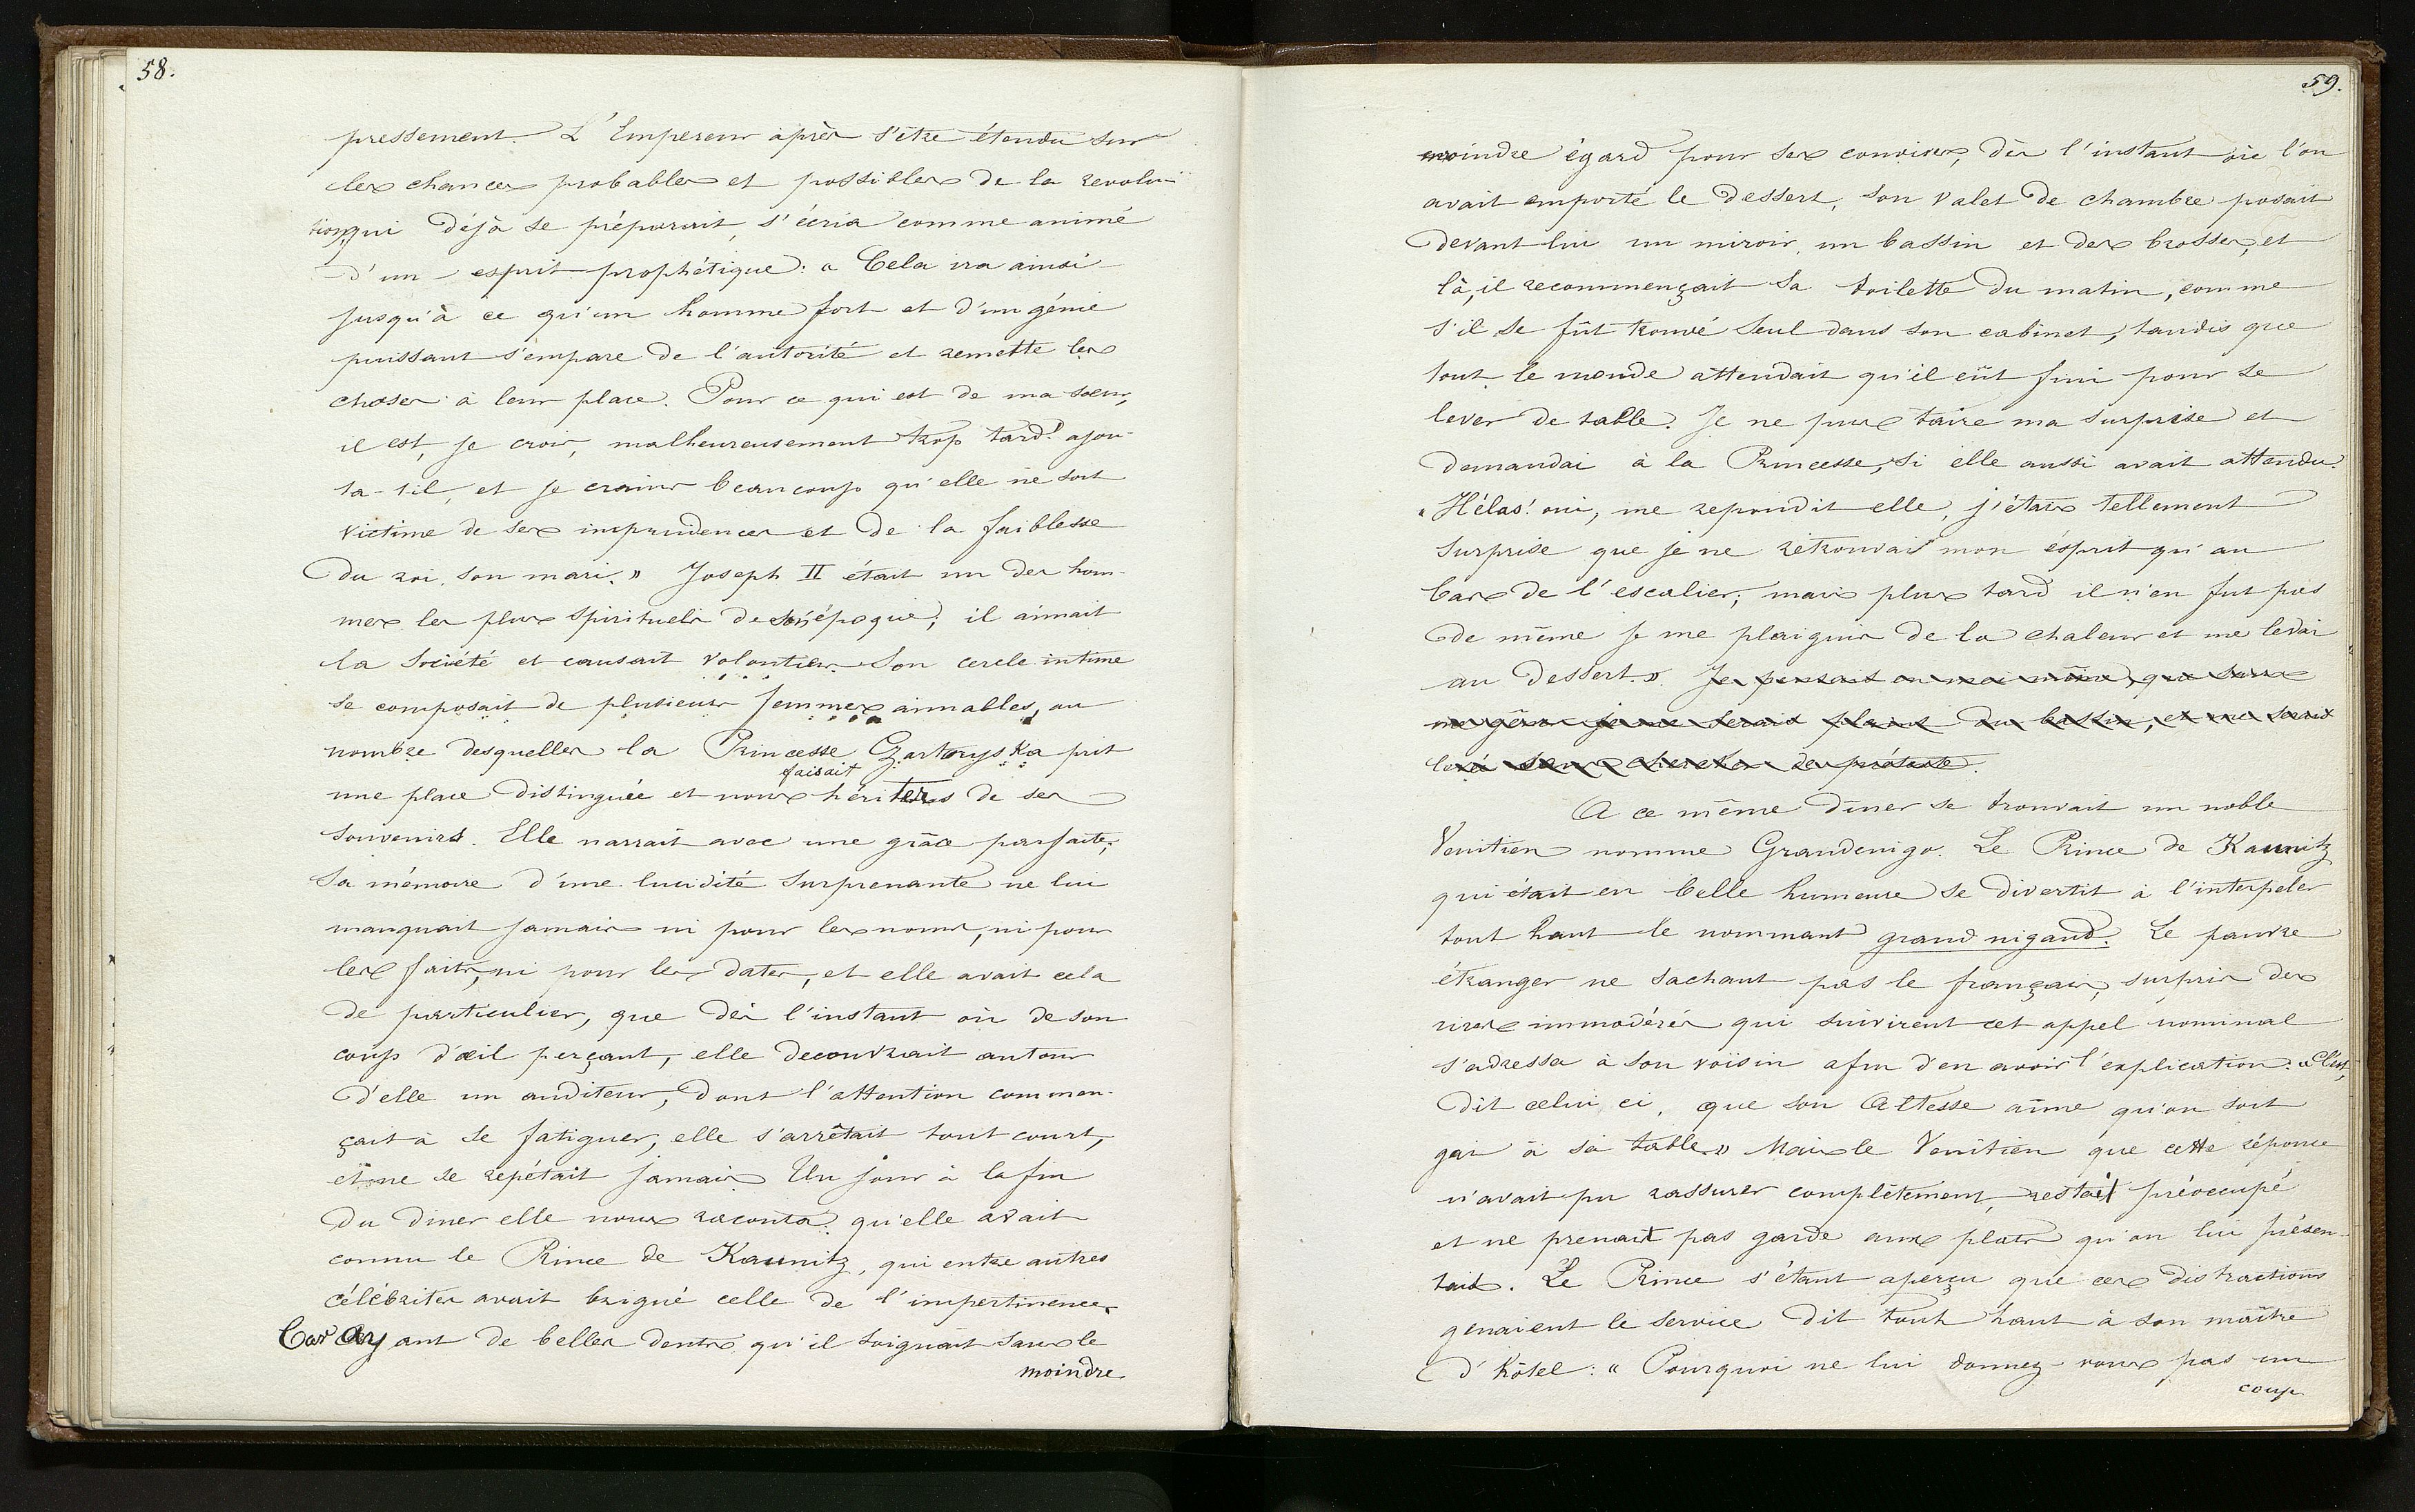 58.
pressement. L'Empereur après s'être étendu sur
les chances probables et possibles de la revolu-
tion qui déjà se préparait, s'écria comme animé
d'un esprit prophétique: « Cela ira ainsi
jusqu'à ce qu'un homme fort et d'un génie
puissant s'empare de l'autorité et remette les
choses à leur place. Pour ce qui est de ma soeur,
il est, je crois, malheureusement trop tard! ajou-
ta-t-il, et je crains beaucoup qu'elle ne soit
victime de ses imprudences et de la faiblesse
du roi, son mari. » Joseph II était un des hom-
mes les plus spirituels de son époque; il aimait
la société et causait volontiers. Son cercle intime
se composait de plusieurs femmes aimables, au
nombre desquelles la Princesse Czartoryska prit
faisait
une place distinguée et nous hériter de ses
souvenirs. Elle narrait avec une grâce parfaite,
sa mémoire d'une lucidité surprenante ne lui
manquait jamais ni pour les noms, ni pour
les faits, ni pour les dates, et elle avait cela
de particulier, que dès l'instant où de son
coup d'œil perçant, elle decouvrait autour
d'elle un auditeur, dont l'attention commen-
çait à se fatiguer, elle s'arrêtait tout court,
et ne se repétait jamais. Un jour à la fin
du diner elle nous raconta qu'elle avait
connu le Prince de Kaunitz, qui entre autres
célébrités avait brigué celle de l'impertinence.
Car ayant de belles dents qu'il soignait sans le
moindre
59.
moindre égard pour ses convives, dès l'instant où l'on
avait emporté le dessert, son valet de chambre posait
devant lui un miroir, un bassin et des brosses, et
là, il recommençait sa toilette du matin, comme
s'il se fût trouvé seul dans son cabinet, tandis que
tout le monde attendait qu'il eût fini pour se
lever de table. Je ne pus taire ma surprise et
demandai à la Princesse, si elle aussi avait attendu.
« Hélas! oui, me repondit elle, j'étais tellement
surprise que je ne retrouvais mon esprit qu'au
bas de l'escalier; mais plus tard il n'en fut pas
de même je me plaignis de la chaleur et me levai
au dessert. » Je pensais en moi même, que sans
me gêner je me serais plaint du bassin, et me serais
levée sans chercher de prétexte.
A ce même dîner se trouvait un noble
Venitien nomme Grandenigo. Le Prince de Kaunitz
qui était en belle humeure se divertit à l'interpeler
tout haut le nommant grand nigaud. Le pauvre
étranger ne sachant pas le français, surpris des
rires immodérés qui suivirent cet appel nominal
s'adressa à son voisin afin d'en avoir l'explication: « C'est,
dit celui ci, que son Altesse aime qu'on soit
gai à sa table. » Mais le Venitien que cette réponse
n'avait pu rassurer complètement, restait préoccupé
et ne prenait pas garde aux plats qu'on lui présen-
tait. Le Prince s'étant aperçu que ces distractions
genaient le service dit tout haut à son maître
d'hôtel: « Pourquoi ne lui donnez-vous pas un
coup